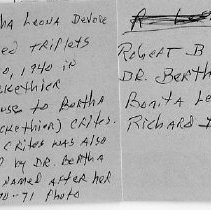 ha Leona DeVore
ed Triplets
0, 1940 in
ckethier
use to Bertha
ckethier) Crites.
Crites was also
d by Dr. Bertha
named after her
70-71 Photo
Robert B
Dr. Berth
Bonita Le
Richard